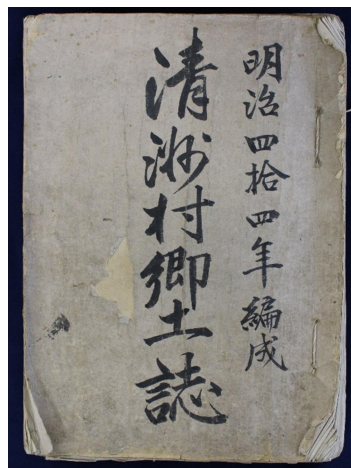 明治四拾四年編成
清洲村郷土誌